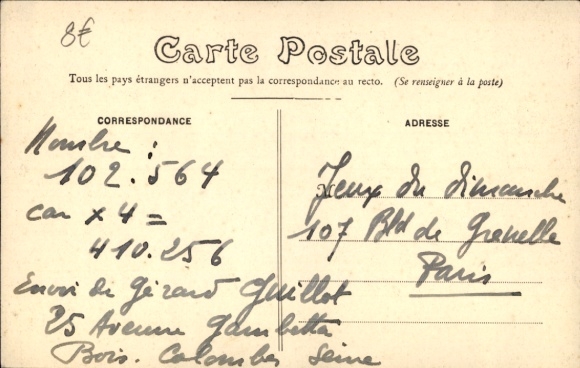 8€
Carte Postale
Tous les pays étrangers n'acceptent pas la correspondance au recto. (Se renseigner à la poste)
CORRESPONDANCE
Nombre :
102.564
car x 4 =
410.256
Envoi de Gérard Guillot
25 Avenue Gambetta
Bois. Colombes Seine
ADRESSE
M
Jeux du Dimanche
107 Bld de Grenelle
Paris